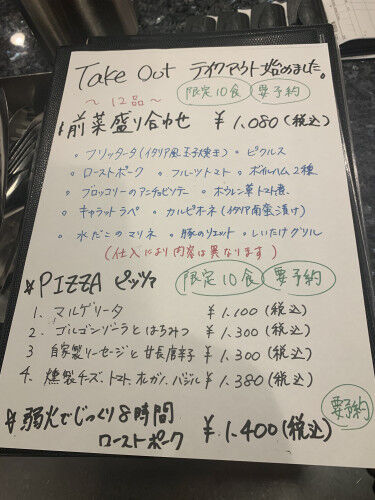 Take Out テイクアウト始めました。
〜12品〜 限定10食 要予約
前菜盛り合わせ ¥1.080(税込)
・フリッタータ(イタリア風玉子焼き) ・ピクルス
・ローストポーク ・フルーツトマト ・ボイルハム2種
・ブロッコリーのアンチョビソテー ・ホウレン草トマト煮
・キャラットラペ ・カルピオーネ(イタリア南蛮漬け)
・水だこのマリネ ・豚のリエット ・しいたけグリル
(仕入により内容は異なります)
PIZZA ピッツァ 限定10食 要予約
1. マルゲリータ ¥1.100(税込)
2. ゴルゴンゾーラとはちみつ ¥1.300(税込)
3 自家製ソーセージと甘長唐辛子 ¥1.300(税込)
4. 燻製チーズ、トマト、オレガノ、バジル ¥1.380(税込)
要予約
弱火でじっくり8時間
ローストポーク ¥1.400(税込)